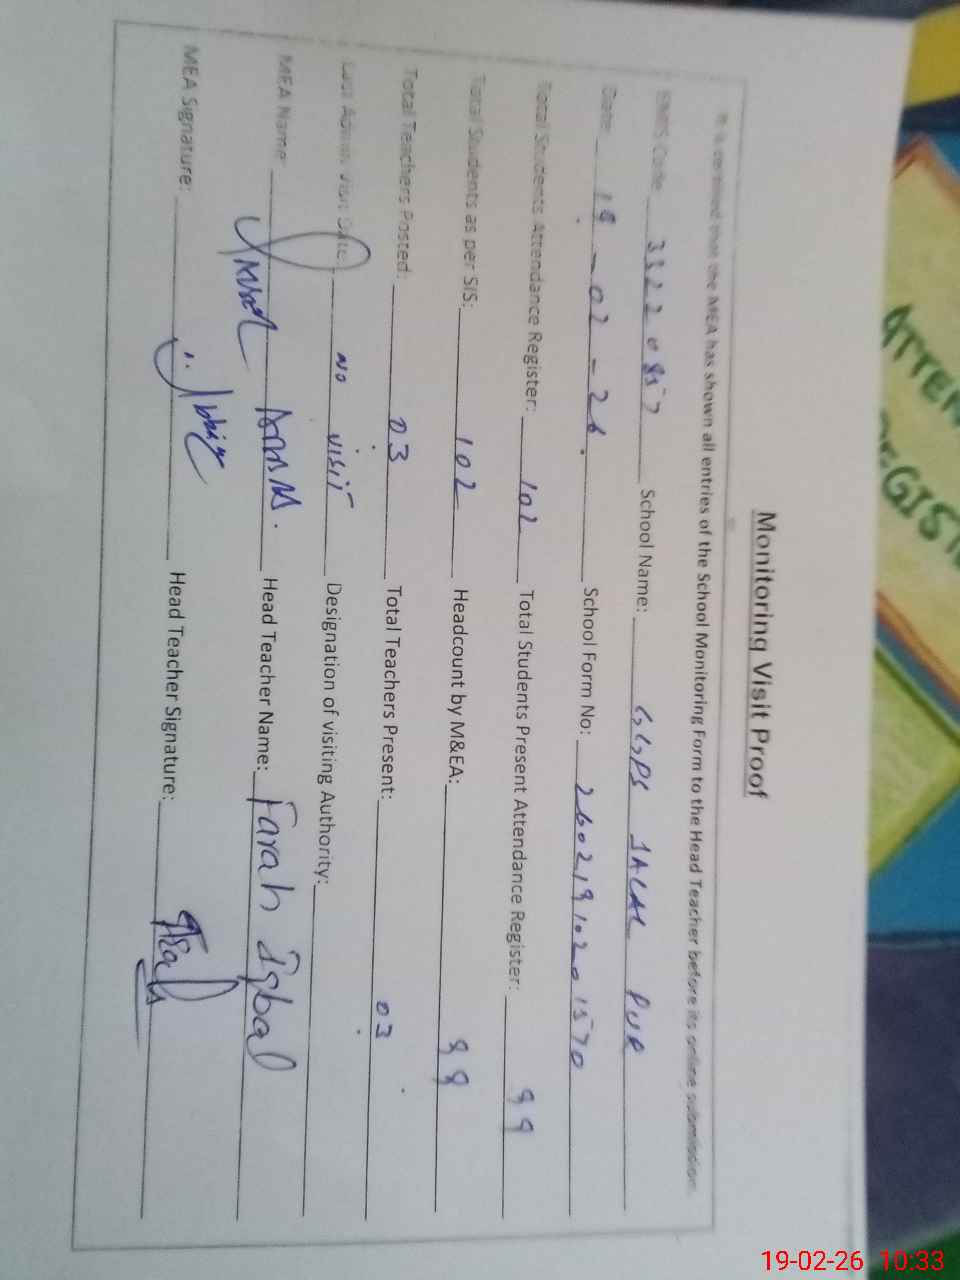 ATTEN
REGIST
Monitoring Visit Proof
It is certified that the MEA has shown all entries of the School Monitoring Form to the Head Teacher before its online submission.
EMIS Code 35220857 School Name: GGPS JALAL PUR
Date: 19-02-26 School Form No: 26021910201570
Total Students Attendance Register: 102 Total Students Present Attendance Register: 99
Total Students as per SIS: 102 Headcount by M&EA: 99
Total Teachers Posted: 03 Total Teachers Present: 03
Last Admin Visit Date: NO VISIT Designation of visiting Authority:
MEA Name: Head Teacher Name: Farah Iqbal
MEA Signature: Head Teacher Signature:
19-02-26 10:33